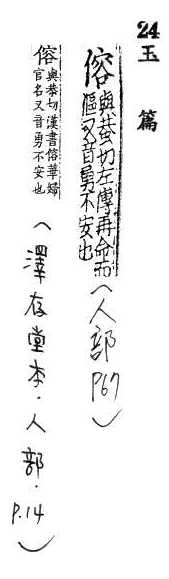 24 玉篇
傛
與恭切左傳再命而
傴又音勇不安也
(人部 P67)
傛
與恭切漢書傛華婦
官名又音勇不安也
(澤存堂本.人部.P.14)